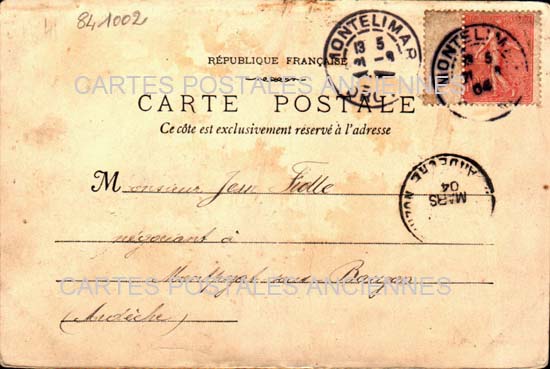 841002
MONTELIMAR
13 5
MONTELIMAR
5
04
RÉPUBLIQUE FRANÇAISE
CARTES POSTALES ANCIENNES
CARTE POSTALE
Ce côté est exclusivement réservé à l'adresse
MARS
04
Monsieur Jean
négociant à
CARTES POSTALES ANCIENNES
(Ardèche)